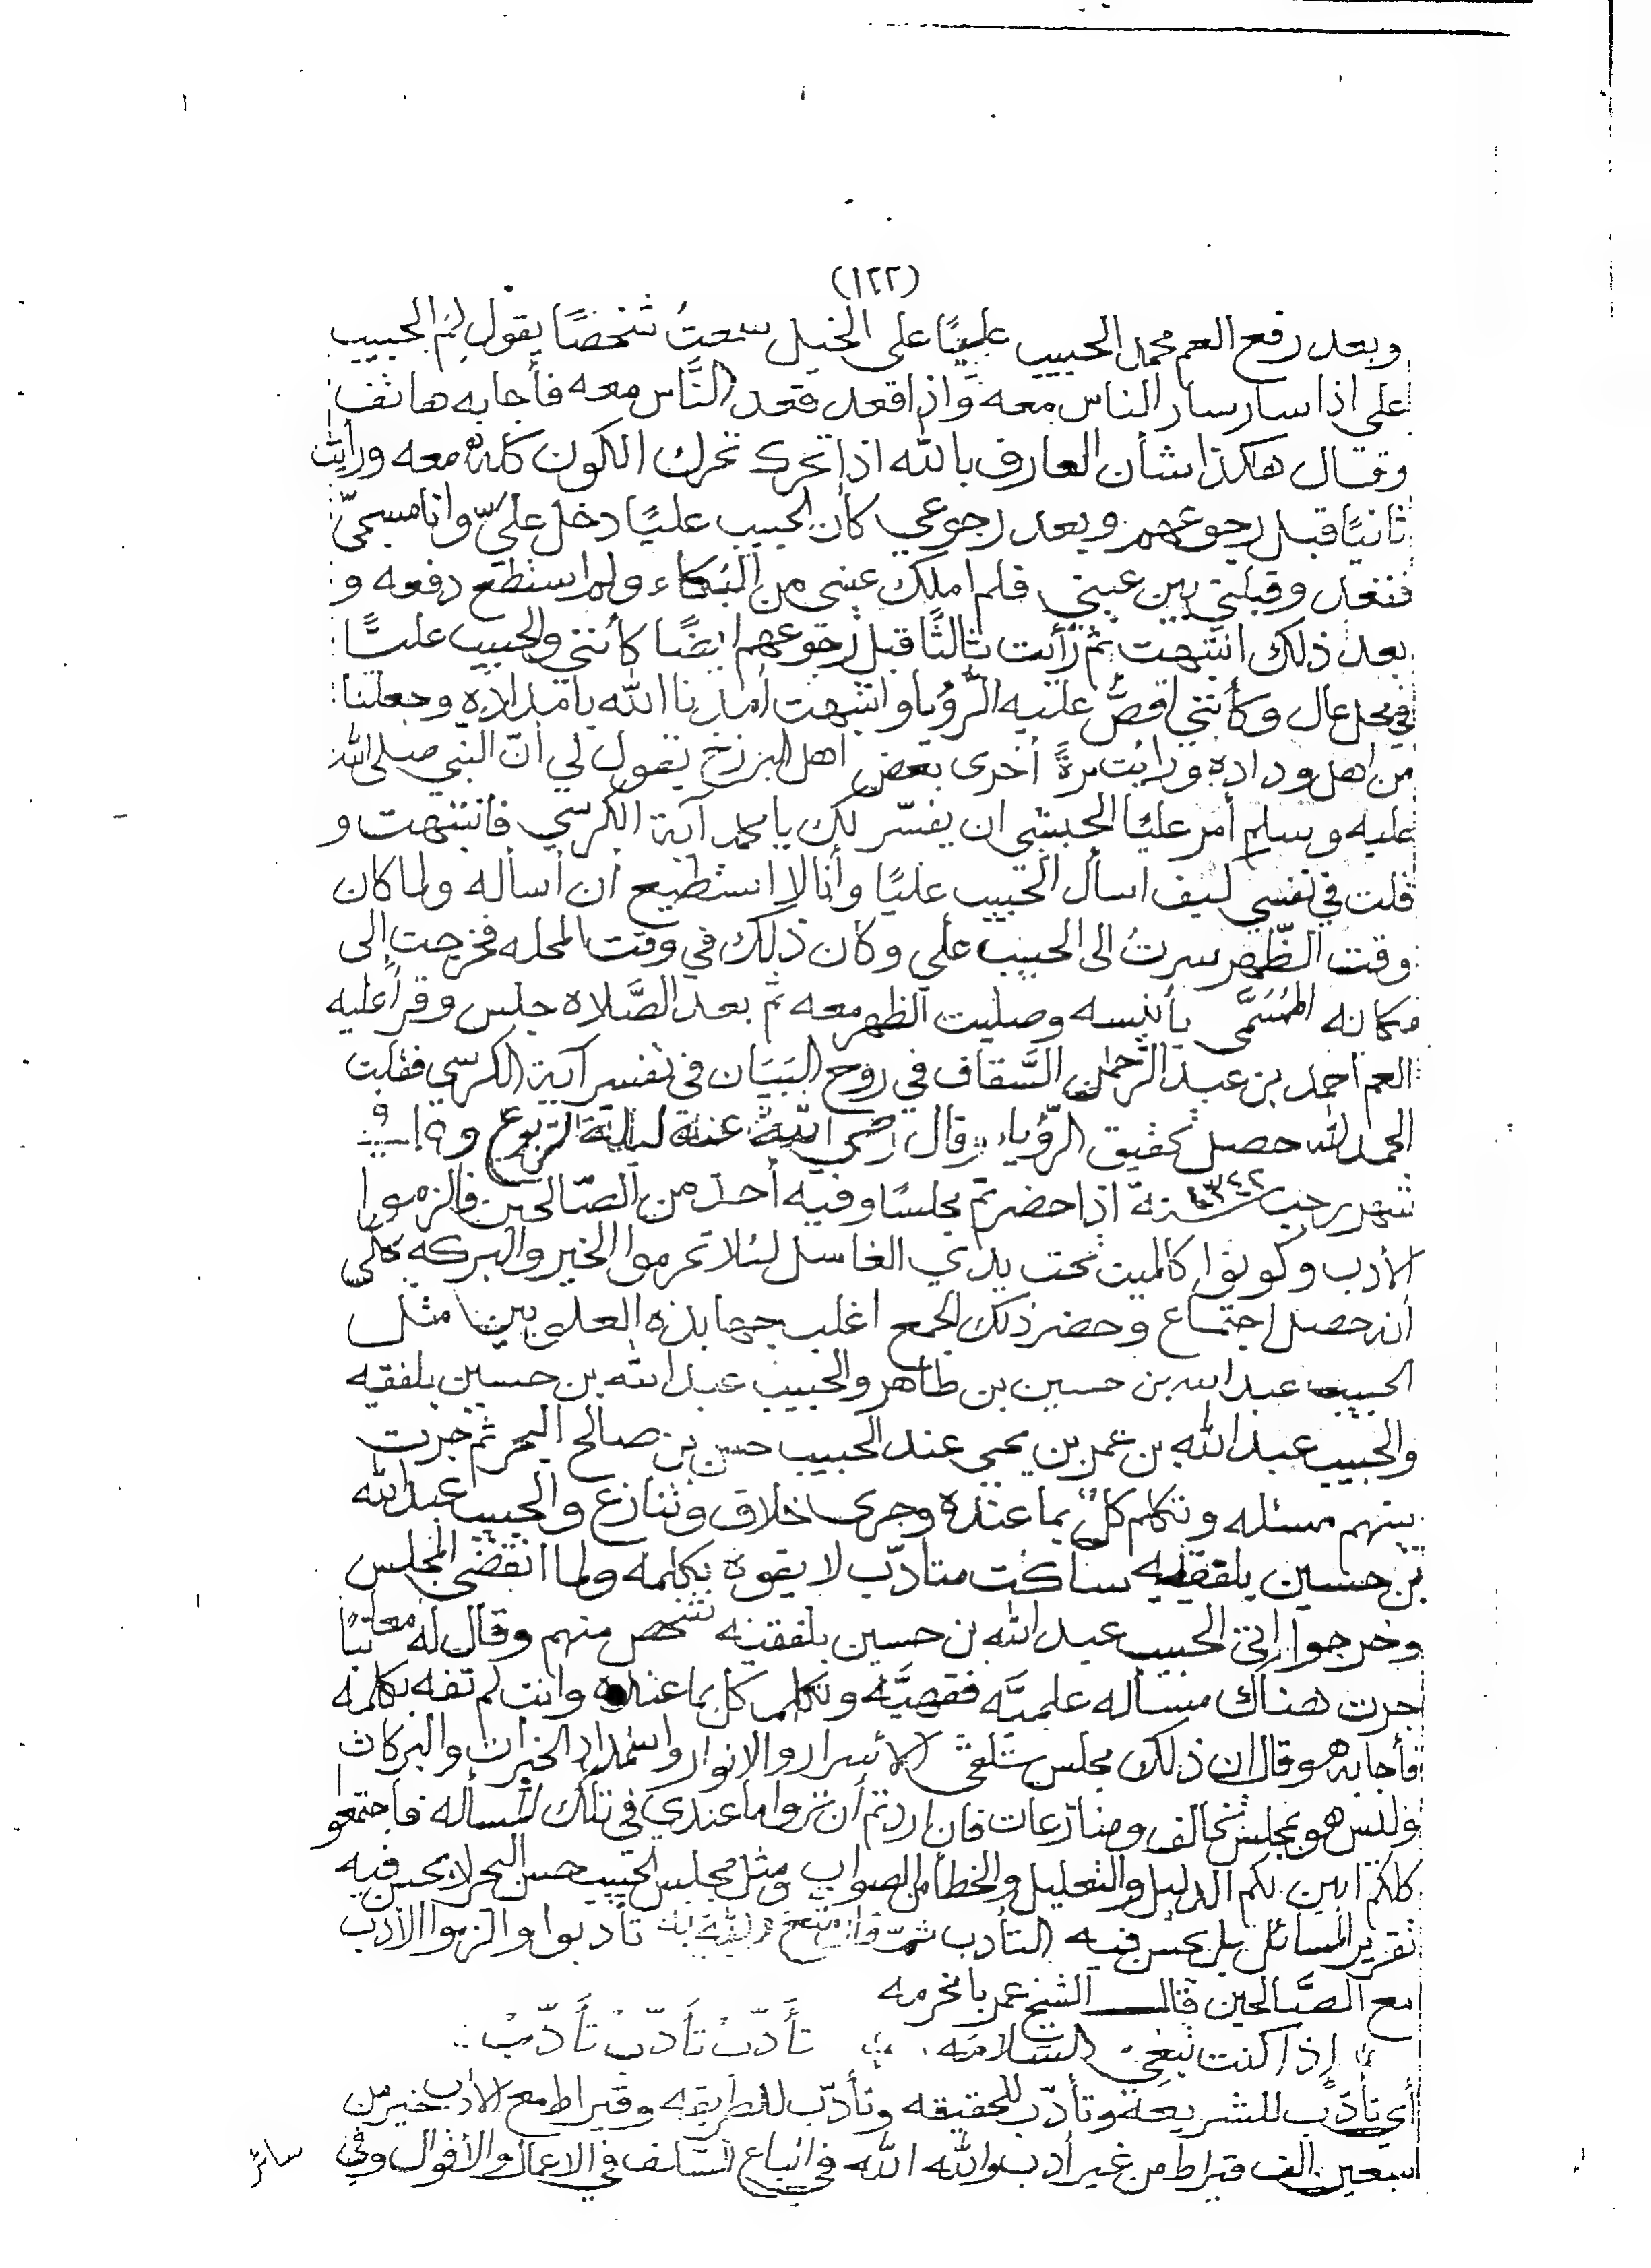 (١٢٢)
وبعد رفع العم محمد الحبيب عليًا على الخيل سمعتُ شخصًا يقول لِمَ الحبيب
علي اذا سار سار الناس معه وَاذا قعد قعد النَّاس معه فأجابه هاتف
وقال هكذا شأن العارف بالله اذا تحرك تحرك الكون كله معه ورأيت
ثانيًا قبل رجوعهم وبعد رجوعي كأن الحبيب عليًا دخل عليّ وانا مسجىّ
فقعد وقبلني بين عيني فلم املك عيني من البُكاء ولم استطع دفعه و
بعد ذلك انتبهت ثم رأيت ثالثًا قبل رجوعهم ايضًا كأنني والحبيب عليًّا
في محل عال وكأنني اقصُّ عليه الرُّؤيا وانتبهت أمدنا الله بامداده وجعلنا
من اهل وداده ورأيت مرةً أخرى بعض اهل البرزخ يقول لي أنّ النبي صلى الله
عليه وسلم أمر عليًا الحبشي ان يفسّر لك يا محمد آية الكرسي فانتبهت و
قلت في نفسي كيف اسأل الحبيب عليًا وأنا لا استطيع أن أسأله ولما كان
وقت الظّهر سرتُ الى الحبيب علي وكان ذلك في وقت المحله فخرجت إلى
مكانه المُسَمَّى بأنيسه وصليت الظهر معه ثم بعد الصَّلاة جلس وقرأ عليه
العم احمد بن عبد الرّحمن السَّقاف في روح البَيَان في تفسير آية الكرسي فقلت
الحمد لله حصل تحقيق الرّؤياء وقال رضي الله عنه ليلة الربوع و١٩
شهر رجب سنة ١٣٤٢ اذا حضرتم مجلسًا وفيه أحد من الصّالحين فالزموا
الأدب وكونوا كالميت تحت يدي الغاسل لئلا تحرموا الخير والبركه حُكي
أنه حصل اجتماع وحضر ذلك الجمع اغلب جهابذة العلويين مثل
الحبيب عبد الله بن حسين بن طاهر والحبيب عبد الله بن حسين بلفقيه
والحبيب عبد الله بن عمر بن يحيى عند الحبيب حسن بن صالح البحر ثم جرت
بينهم مسئله وتكلم كلٌ بما عنده وجرى خلاف وتنازع والحبيب عبد الله
بن حسين بلفقيه ساكت متأدّب لا يفوه بكلمه ولما انقضى المجلس
وخرجوا اتى الحبيب عبد الله بن حسين بلفقيه شخص منهم وقال له معاتبًا
جرت هناك مسأله علميَّه فقهيَّه وتكلم كل بما عنده وانت لم تفه بكلمه
فأجابه هو وقال ان ذلك مجلس تلقي الأسرار والانوار واستمداد الخيرات والبركات
وليس هو بمجلس تخالف ومنازعات فان اردتم أن تروا ما عندي في تلك المسأله فاجتمعوا
كلكم ابين لكم الدليل والتعليل والخطأ من الصواب ومثل مجلس الحبيب حسن البحر لا يحسن فيه
تقرير المسائل بل يحسن فيه التأدب تأدبوا والزموا الأدب
مع الصَّالحين قال الشيخ عمر بامخرمه
إذا كنت تبغي السَّلامَه ∴ تأَدّبْ تأَدّبْ تأَدّبْ
أي تأدّب للشريعة وتأدّب للحقيقه وتأدّب للطريقه وقيراط مع الأدب خير من
سبعين الف قيراط من غير أدب والله الله في اتباع السَّلف في الاعمال والأقوال وفي
سائر